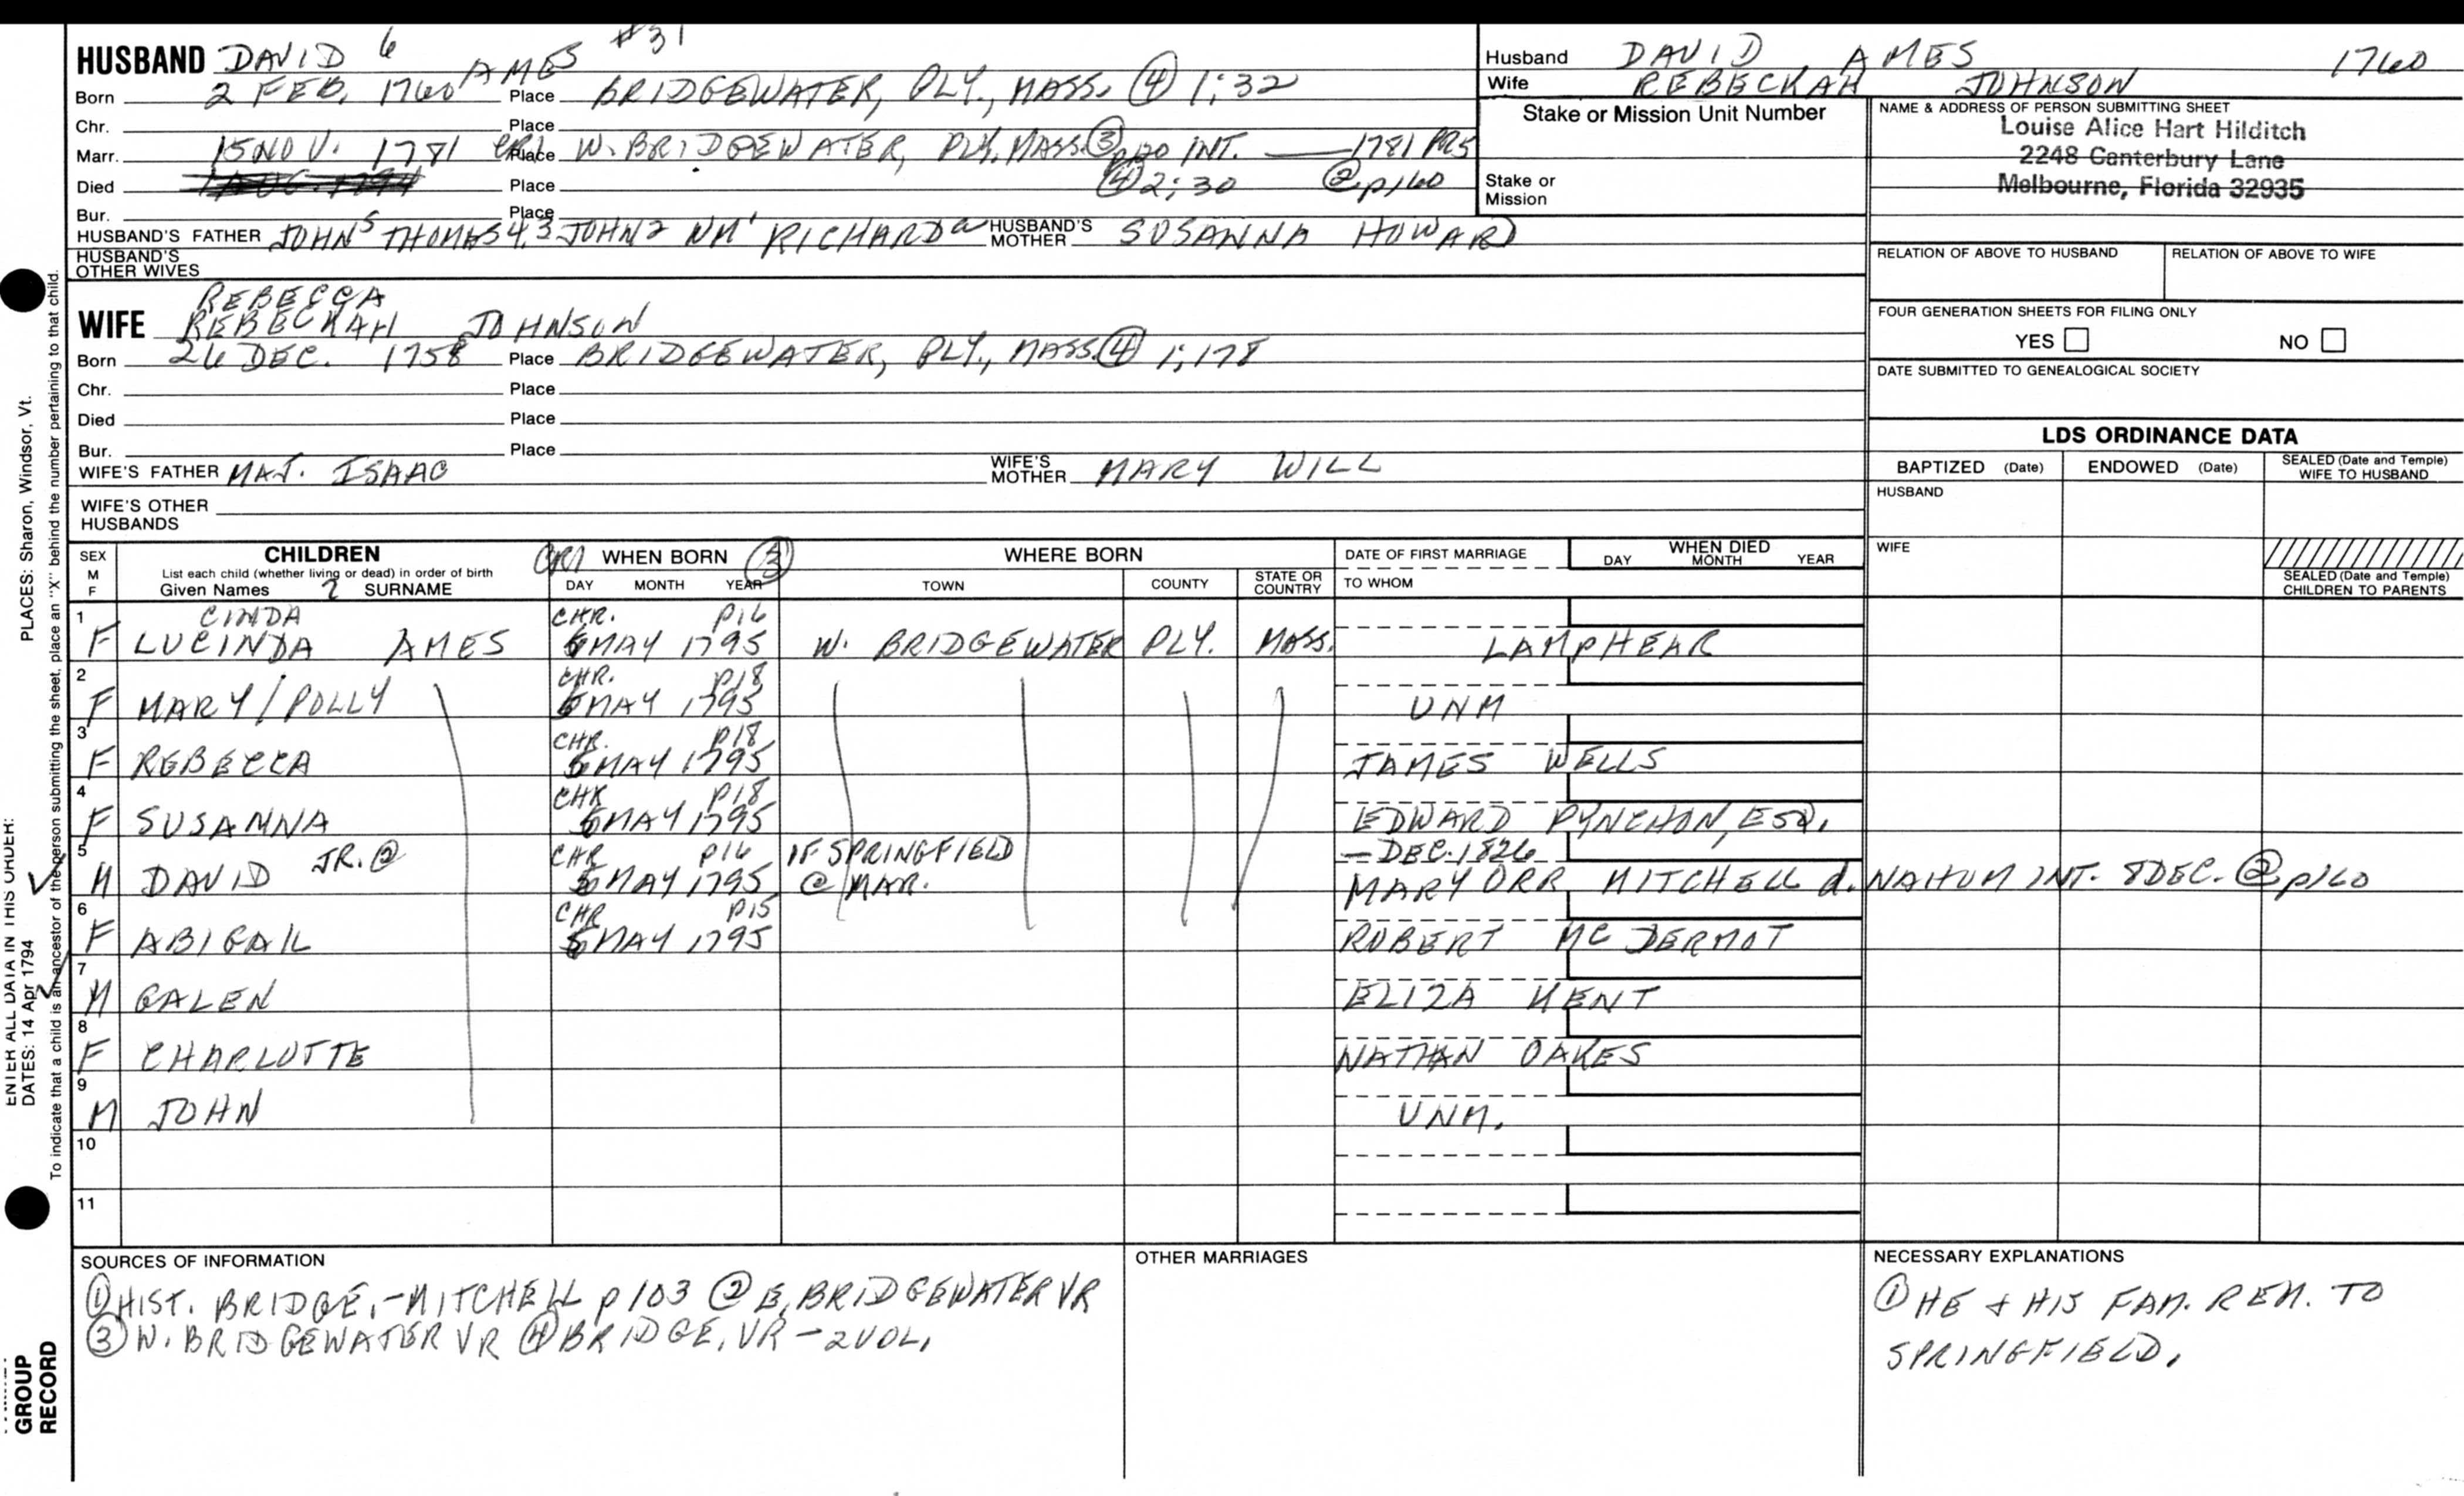 HUSBAND DAVID 6 AMES #31
Born 2 FEB. 1760 Place BRIDGEWATER, PLY., MASS. ④ 1:32
Chr. Place
Marr. 15 NOV. 1781 CR1 Place W. BRIDGEWATER, PLY. MASS. ③ p20 INT. — 1781 PR5
Died Place ④ 2:30 ② p160
Bur. Place
HUSBAND'S FATHER JOHN5 THOMAS 4,3 JOHN2 WM1 RICHARDa HUSBAND'S MOTHER SUSANNA HOWARD
HUSBAND'S OTHER WIVES
REBECCA
WIFE REBECKAH JOHNSON
Born 26 DEC. 1758 Place BRIDGEWATER, PLY., MASS. ④ 1:178
Chr. Place
Died Place
Bur. Place
WIFE'S FATHER MAJ. ISAAC WIFE'S MOTHER MARY WILL
WIFE'S OTHER HUSBANDS
Husband DAVID AMES 1760
Wife REBECKAH JOHNSON
Stake or Mission Unit Number
Stake or Mission
NAME & ADDRESS OF PERSON SUBMITTING SHEET
Louise Alice Hart Hilditch
2248 Canterbury Lane
Melbourne, Florida 32935
RELATION OF ABOVE TO HUSBAND RELATION OF ABOVE TO WIFE
FOUR GENERATION SHEETS FOR FILING ONLY
YES NO
DATE SUBMITTED TO GENEALOGICAL SOCIETY
LDS ORDINANCE DATA
BAPTIZED (Date) ENDOWED (Date) SEALED (Date and Temple) WIFE TO HUSBAND
HUSBAND
WIFE
SEALED (Date and Temple) CHILDREN TO PARENTS
SEX M F
CHILDREN
List each child (whether living or dead) in order of birth
Given Names ? SURNAME
CR1 WHEN BORN ③
DAY MONTH YEAR
WHERE BORN
TOWN COUNTY STATE OR COUNTRY
DATE OF FIRST MARRIAGE
TO WHOM
WHEN DIED
DAY MONTH YEAR
1 CINDA CHR. p16
F LUCINDA AMES 6 MAY 1795 W. BRIDGEWATER PLY. MASS. LAMPHEAR
2 CHR. p18
F MARY/POLLY 6 MAY 1795 UNM
3 CHR. p18
F REBECCA 6 MAY 1795 JAMES WELLS
4 CHR p18
F SUSANNA 6 MAY 1795 EDWARD PYNCHON, ESQ.
5 JR. ② CHR p16 OF SPRINGFIELD — DEC. 1826
M DAVID 6 MAY 1795 @ MAR. MARY ORR MITCHELL d. NAHUM INT. 8 DEC. ② p160
6 CHR p15
F ABIGAIL 6 MAY 1795 ROBERT MC DERMOT
7
M GALEN ELIZA KENT
8
F CHARLOTTE NATHAN OAKES
9
M JOHN UNM.
10
11
SOURCES OF INFORMATION
① HIST. BRIDGE.-MITCHELL p103 ② E. BRIDGEWATER VR
③ W. BRIDGEWATER VR ④ BRIDGE. VR - 2 VOL.
OTHER MARRIAGES
NECESSARY EXPLANATIONS
① HE & HIS FAM. REM. TO
SPRINGFIELD.
PLACES: Sharon, Windsor, Vt.
ENTER ALL DATA IN THIS ORDER:
DATES: 14 Apr 1794
To indicate that a child is an ancestor of the person submitting the sheet, place an "X" behind the number pertaining to that child.
GROUP
RECORD